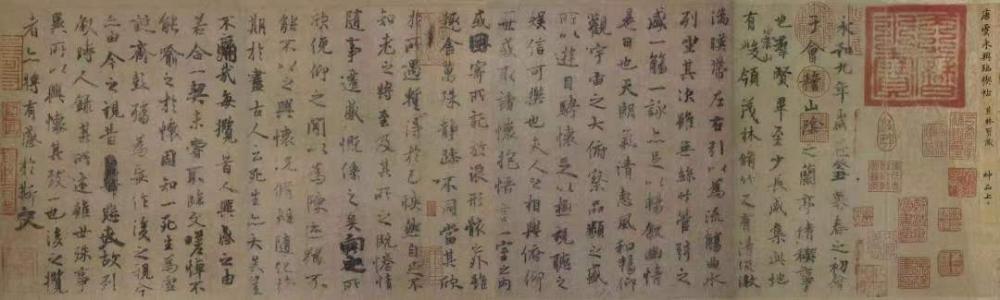 唐虞永興臨禊帖
神品上
永和九年歲在癸丑暮春之初會
于會稽山陰之蘭亭脩稧事
也羣賢畢至少長咸集此地
有崇山峻領茂林脩竹又有清流激
湍暎帶左右引以為流觴曲水
列坐其次雖無絲竹管弦之
盛一觴一詠亦足以暢敘幽情
是日也天朗氣清惠風和暢仰
觀宇宙之大俯察品類之盛
所以遊目騁懷足以極視聽之
娛信可樂也夫人之相與俯仰
一世或取諸懷抱悟言一室之內
或因寄所託放浪形骸之外雖
趣舍萬殊靜躁不同當其欣
於所遇暫得於己怏然自足不
知老之將至及其所之既惓情
隨事遷感慨係之矣向之所
欣俛仰之閒以為陳迹猶不
能不以之興懷況脩短隨化終
期於盡古人云死生亦大矣豈
不痛哉每攬昔人興感之由
若合一契未嘗不臨文嗟悼不
能喻之於懷固知一死生為虛
誕齊彭殤為妄作後之視今
亦由今之視昔悲夫故列
敘時人錄其所述雖世殊事
異所以興懷其致一也後之攬
者亦將有感於斯文